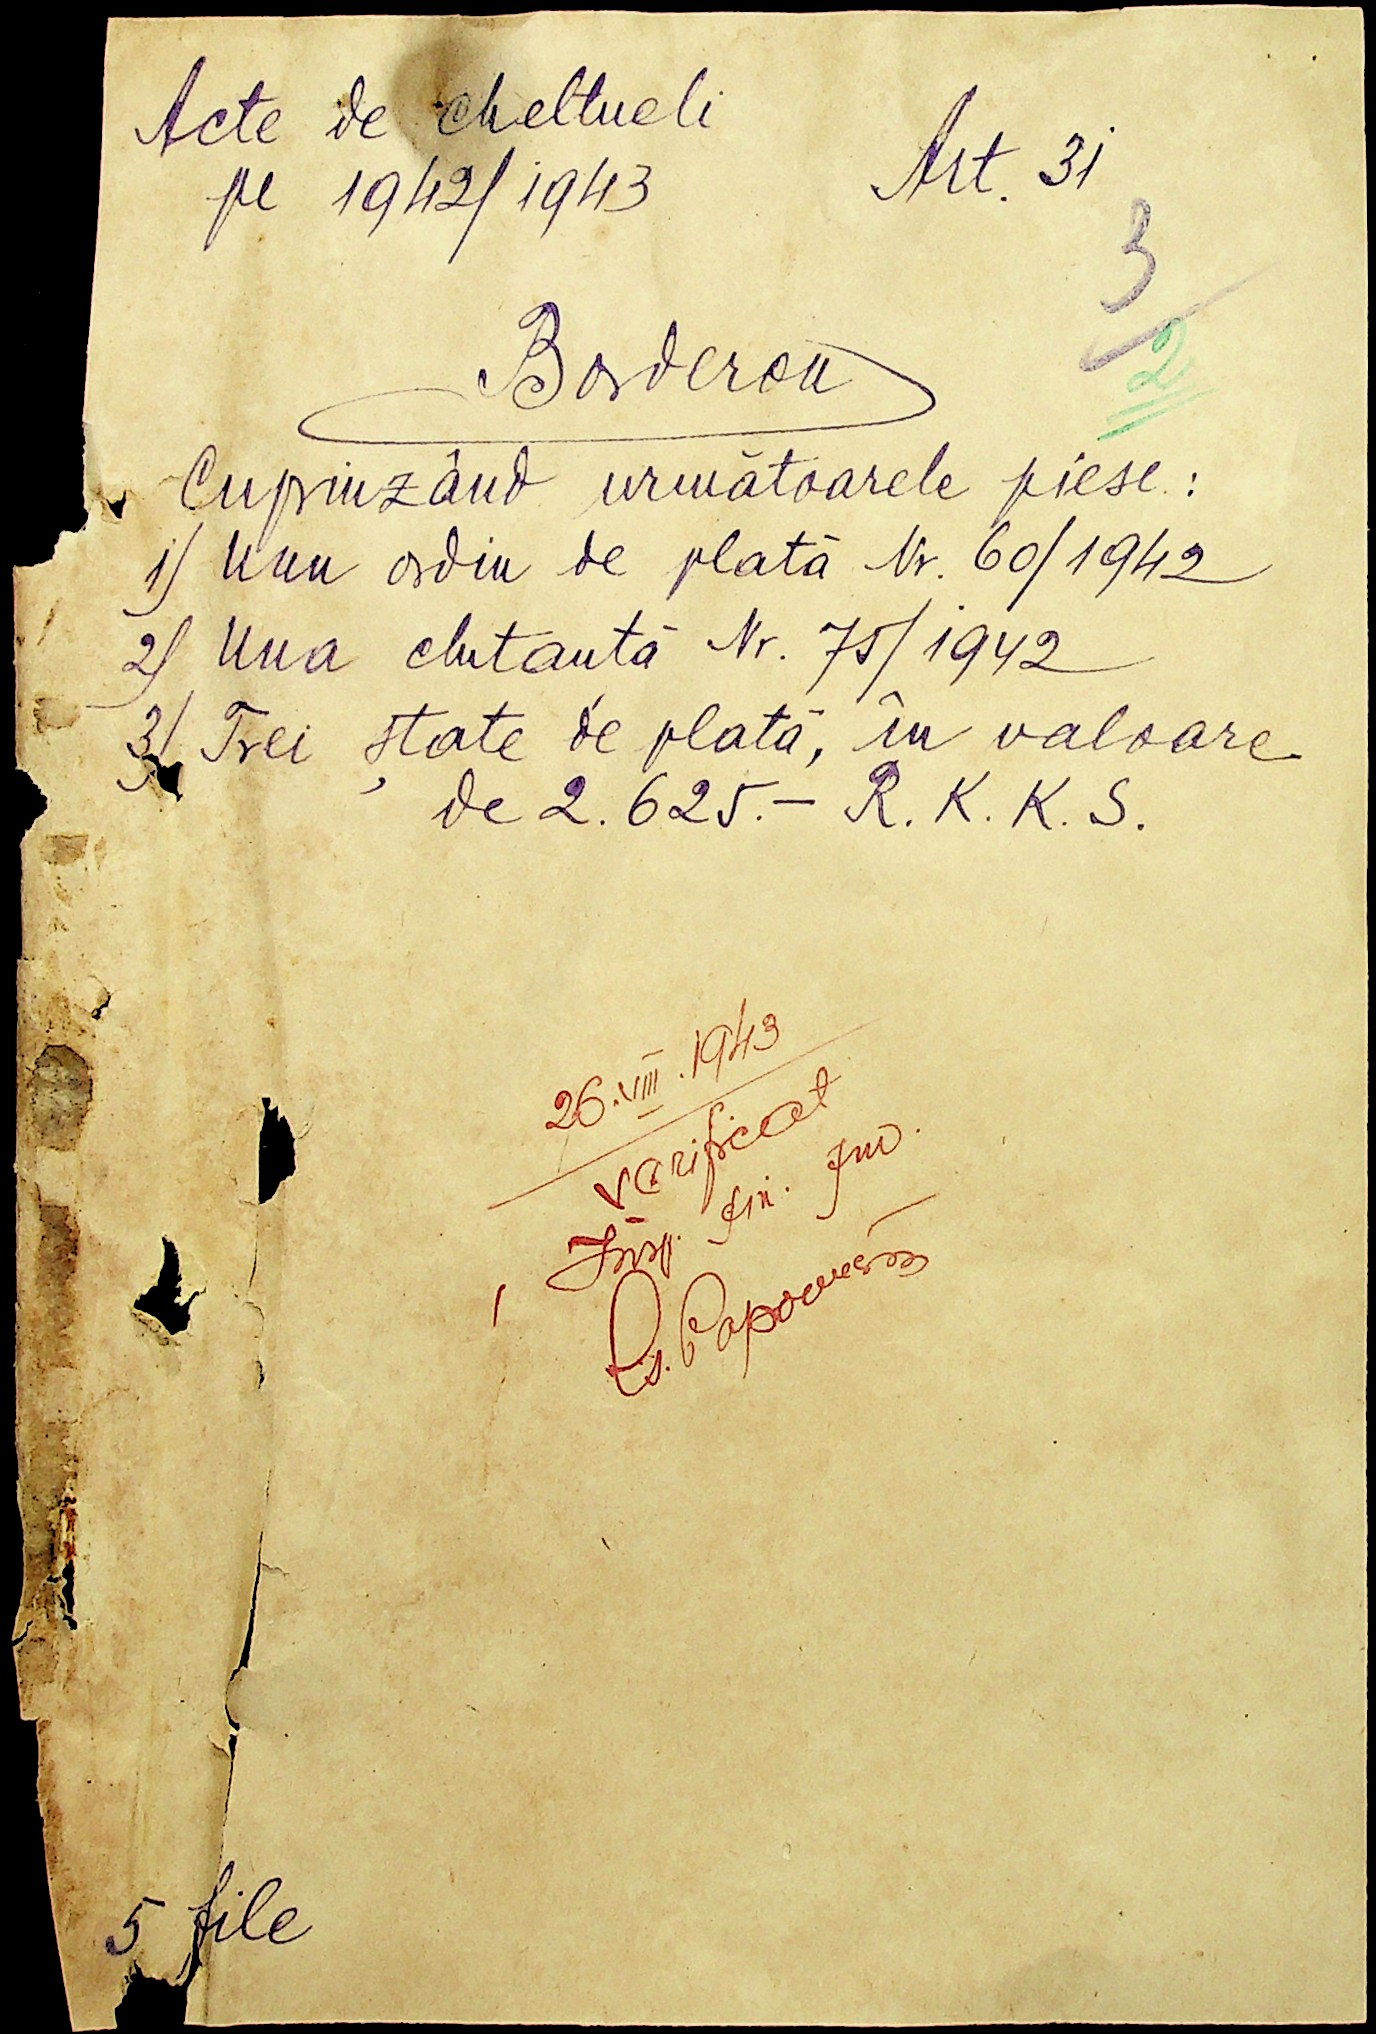 Acte de cheltueli
pe 1942/1943
Art. 31
3
2
Borderou
Cuprinzând următoarele piese:
1) Unu ordin de plată Nr. 60/1942
2) Una chitantă Nr. 75/1942
3) Trei ștate de plată, în valoare
de 2.625.- R.K.K.S.
26.VIII.1943
verificat
Insp. fin.
5 file